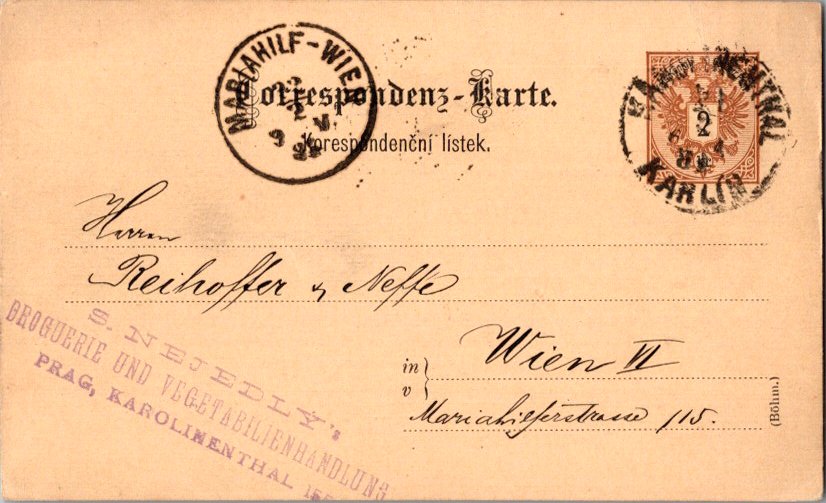 MARIAHILF-WIEN
Correspondenz-Karte.
Korespondenční lístek.
KAROLINENTHAL
2
KARLÍN
Herren
Reihoffer & Neffe
in
v
Wien VI
Mariahilferstrasse 115.
(Böhm.)
S. NEJEDLY'S
DROGUERIE UND VEGETABILIENHANDLUNG
PRAG, KAROLINENTHAL